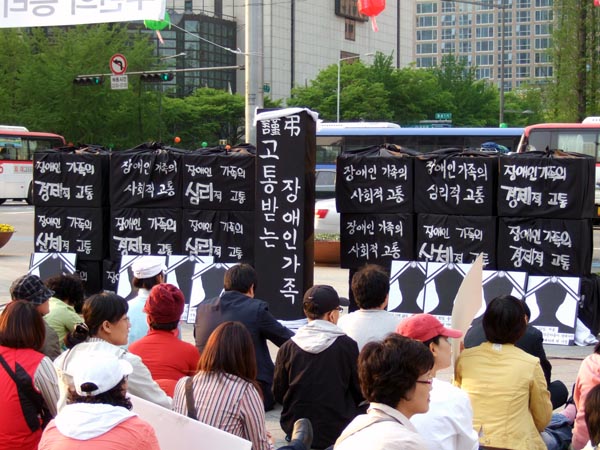 장애인 가족의
경제적 고통
장애인 가족의
사회적 고통
장애인 가족의
심리적 고통
장애인 가족의
신체적 고통
장애인 가족의
경제적 고통
장애인 가족의
심리적 고통
謹弔
고통받는
장애인가족
장애인 가족의
사회적 고통
장애인 가족의
심리적 고통
장애인 가족의
경제적 고통
장애인 가족의
사회적 고통
장애인 가족의
신체적 고통
장애인 가족의
경제적 고통